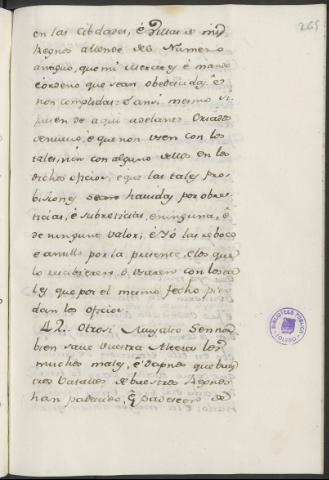 265
en las cibdades, é Villas de mis
Regnos allende del Numero
antiguo, que mi Merced es é mando
é ordeno que sean obedecidas, é
non complidas: é ansi mesmo si
de aqui adelante Criados
de nuevo, é que non usen con los
tales, nin con alguno dellos en los
dichos oficios, é que las tales pro-
bisiones sean havidas por obre-
ticias, é subreticias, é ninguna, é
de ninguno valor; é Yó las reboco
é anullo por la presente, é los que
lo recibieren, ó usaren con los ta-
les que por el mismo fecho pier-
dan los oficios.
42. Otrosi, Muy alto Sennor
bien save Vuestra Alteza los
muchos males, é dapnos que bues-
tros Vasallos de buestros Regnos
han padecido, é padecen de
BIBLIOTECA PUBLICA
TOLEDO